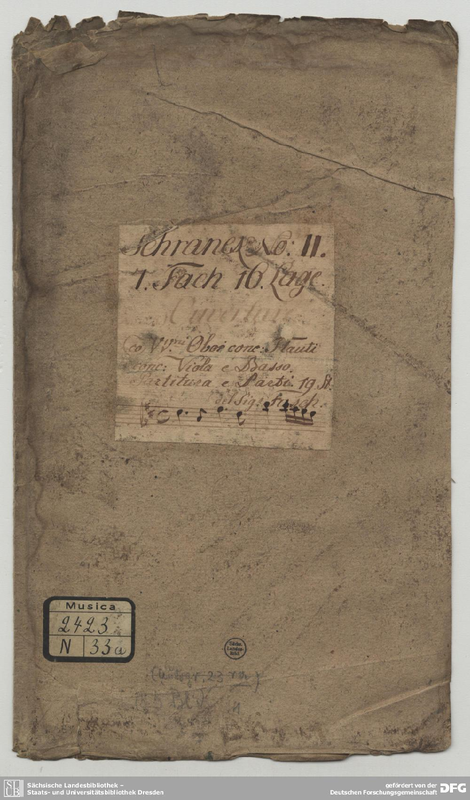 Schranck No: II.
1. Fach 16. Lage.
Co VV.ni Oboè conc: Flauti
conc: Viola e Basso.
Partitura e Parti. 19 St.
del Sig: Fasch.
Musica
2423
N 33a
Sächsische Landesbibliothek –
Staats- und Universitätsbibliothek Dresden
gefördert von der
Deutschen Forschungsgemeinschaft
DFG